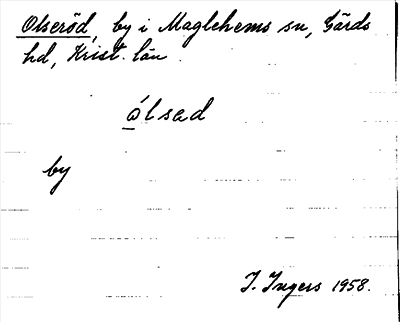 Olseröd, by i Maglehems sn, Gärds
hd, Krist. län.
ålsad
by
I. Ingers 1958.